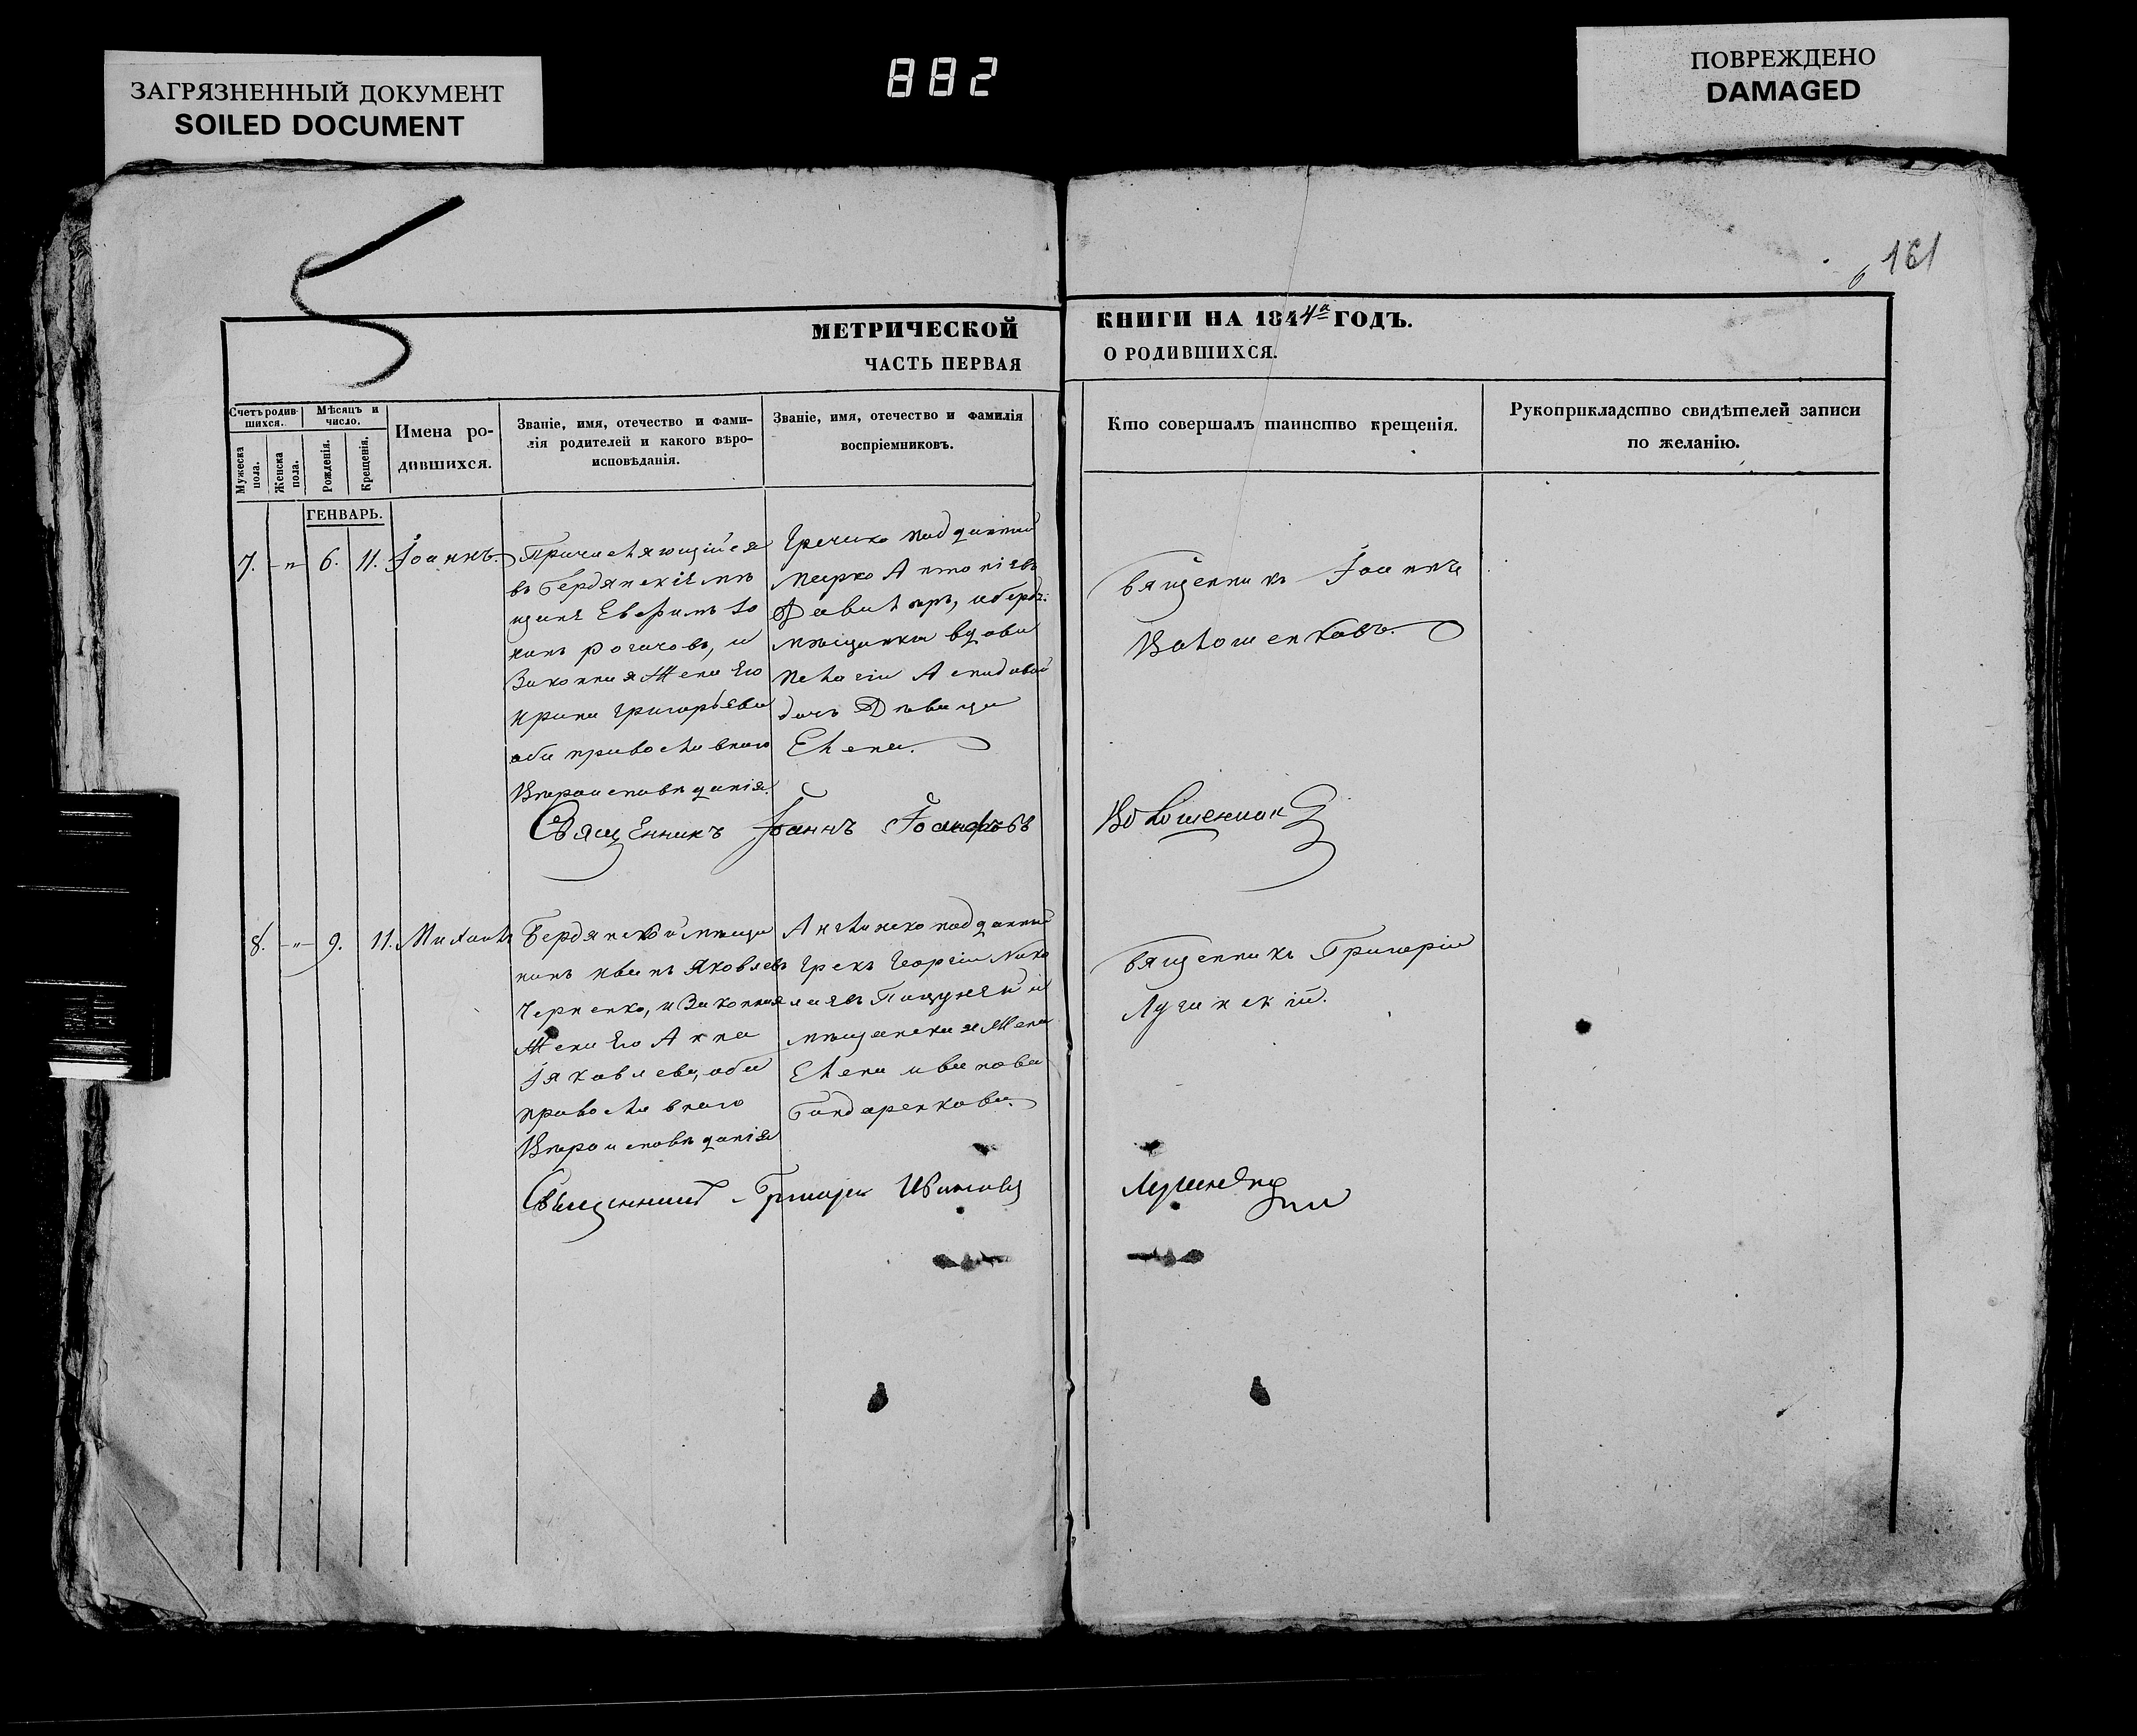 ЗАГРЯЗНЕННЫЙ ДОКУМЕНТ
SOILED DOCUMENT
882
ПОВРЕЖДЕНО
DAMAGED
161
МЕТРИЧЕСКОЙ
ЧАСТЬ ПЕРВАЯ
КНИГИ НА 1844а ГОДЪ.
О РОДИВШИХСЯ.
Счетъ родив-
шихся.
Мужеска
пола.
Женска
пола.
Мѣсяцъ и
число.
Рожденія.
Крещенія.
Имена ро-
дившихся.
Званіе, имя, отечество и фами-
лія родителей и какого вѣро-
исповѣданія.
Званіе, имя, отечество и фамилія
воспріемниковъ.
Кто совершалъ таинство крещенія.
Рукоприкладство свидѣтелей записи
по желанію.
ГЕНВАРЬ.
7. -"- 6. 11. Іоаннъ.
Причисляющійся
въ Бердянскіе мѣ
щане Евфимъ
Рогачовъ, и
Законная Жена Его
Ирина Григорьева
оба православнаго
Вѣроисповѣданія.
Греческо подданный
Марко Антоніевъ
мѣщанки вдовы
Пелагіи
дочь Дѣвица
Елена.
Священникъ Іоаннъ
Волошенковъ.
Священникъ Іоаннъ
8. -"- 9. 11. Михаилъ
Бердянской мѣща
нинъ Иванъ Яковлевъ
Черненко, и Законная
Жена Его Анна
Іяковлева, оба
православнаго
Вѣроисповѣданія
Англинско подданный
Грекъ Георгій Нико
мѣщанская Жена
Елена Иванова
Бондаренкова.
Священникъ Григорій
Лучинскій.
Священникъ Григорій Ивановъ